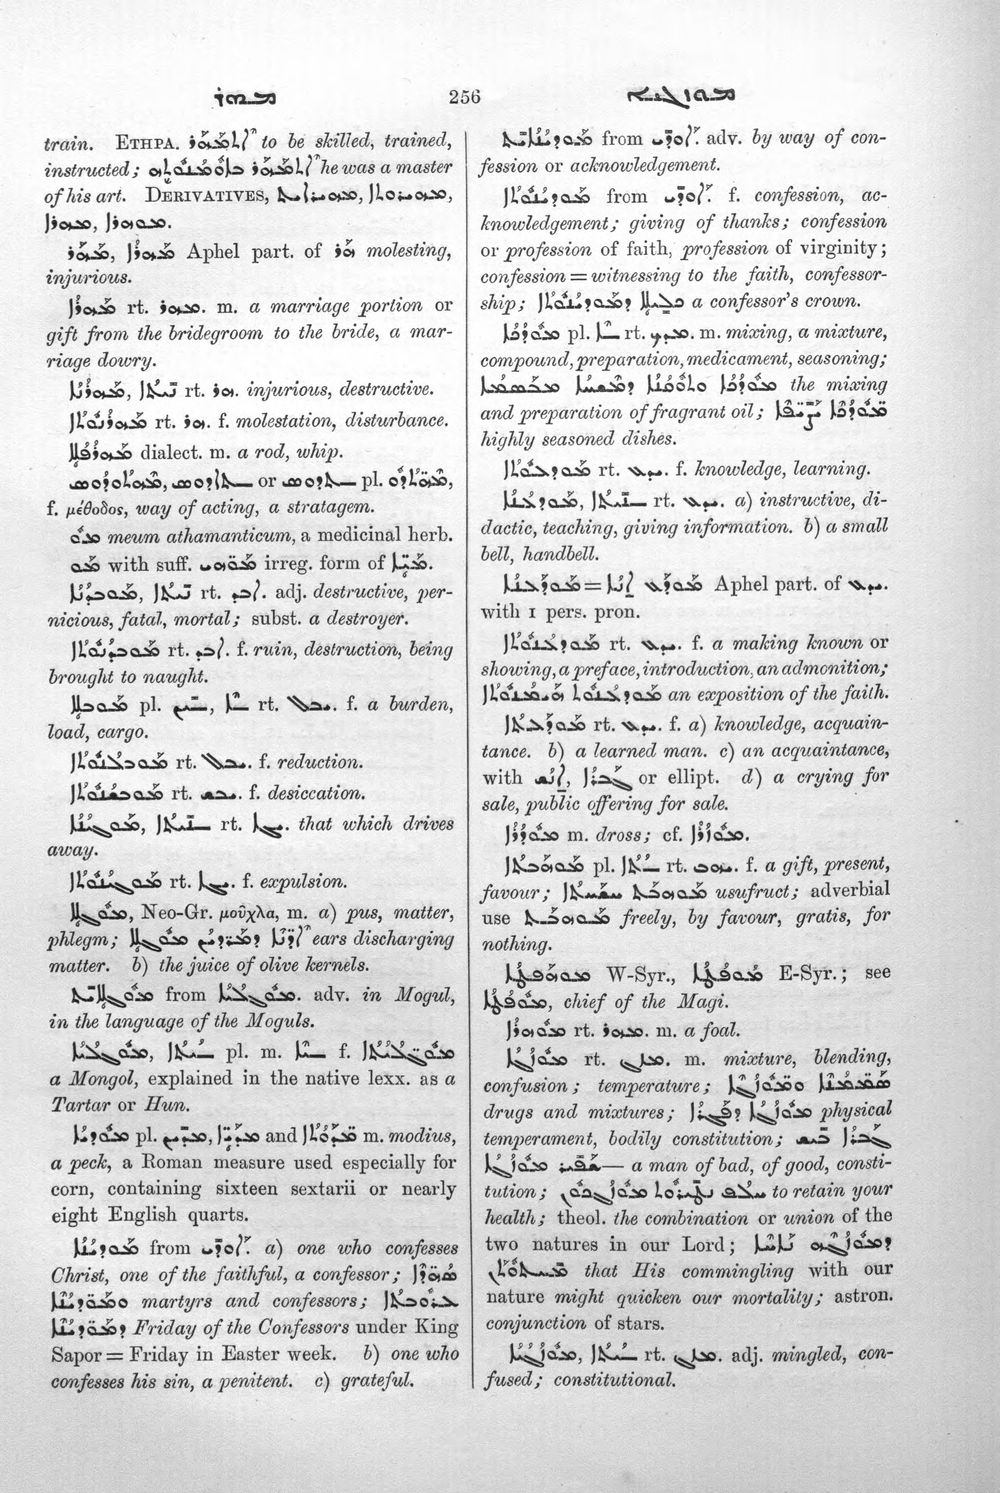 ܡܗܪ
256
ܡܘܙܓܢܝܐ
train. ETHPA. ܐܬܡܗܪ to be skilled, trained,
instructed; ܐܬܡܗܪ ܒܐܘܡܢܘܬܗ he was a master
of his art. DERIVATIVES, ܡܗܝܪܐܝܬ, ܡܗܝܪܘܬܐ,
ܡܗܪܐ, ܡܘܗܪܐ.
ܡܗܪ, ܡܗܪܐ Aphel part. of ܗܪ molesting,
injurious.
ܡܗܪܐ rt. ܡܗܪ. m. a marriage portion or
gift from the bridegroom to the bride, a mar-
riage dowry.
ܡܗܪܢܐ, ܢܝܬܐ rt. ܗܪ. injurious, destructive.
ܡܗܪܢܘܬܐ rt. ܗܪ. f. molestation, disturbance.
ܡܗܪܦܠܐ dialect. m. a rod, whip.
or pl.
f. μέθοδος, way of acting, a stratagem.
ܡܘ meum athamanticum, a medicinal herb.
ܡܘ with suff. ܡܘܗܝ irreg. form of ܡܝܐ.
ܡܘܒܕܢܐ, ܢܝܬܐ rt. ܐܒܕ. adj. destructive, per-
nicious, fatal, mortal; subst. a destroyer.
ܡܘܒܕܢܘܬܐ rt. ܐܒܕ. f. ruin, destruction, being
brought to naught.
ܡܘܒܠܐ pl. ܝܢ, ܠܐ rt. ܝܒܠ. f. a burden,
load, cargo.
ܡܘܒܠܢܘܬܐ rt. ܝܒܠ. f. reduction.
ܡܘܒܫܢܘܬܐ rt. ܝܒܫ. f. desiccation.
ܡܘܓܝܢܐ, ܢܝܬܐ rt. ܝܓܐ. that which drives
away.
ܡܘܓܝܢܘܬܐ rt. ܝܓܐ. f. expulsion.
ܡܘܓܠܐ, Neo-Gr. μοῦχλα, m. a) pus, matter,
phlegm; ܐܕܢܐ ܕܡܪܕܝܢ ܡܘܓܠܐ ears discharging
matter. b) the juice of olive kernels.
ܡܘܓܠܐܝܬ from ܡܘܓܠܝܐ. adv. in Mogul,
in the language of the Moguls.
ܡܘܓܠܝܐ, ܝܬܐ pl. m. ܝܐ f. ܡܘܓܠܝܬܐ
a Mongol, explained in the native lexx. as a
Tartar or Hun.
ܡܘܕܝܐ pl. ܡܕܝܢ, ܡܕܝܐ and ܡܕܘܬܐ m. modius,
a peck, a Roman measure used especially for
corn, containing sixteen sextarii or nearly
eight English quarts.
ܡܘܕܝܢܐ from ܐܘܕܝ. a) one who confesses
Christ, one of the faithful, a confessor; ܣܗܕܐ
ܘܡܘܕܝܢܐ martyrs and confessors; ܥܪܘܒܬܐ
ܕܡܘܕܝܢܐ Friday of the Confessors under King
Sapor = Friday in Easter week. b) one who
confesses his sin, a penitent. c) grateful.
ܡܘܕܝܢܐܝܬ from ܐܘܕܝ. adv. by way of con-
fession or acknowledgement.
ܡܘܕܝܢܘܬܐ from ܐܘܕܝ. f. confession, ac-
knowledgement; giving of thanks; confession
or profession of faith, profession of virginity;
confession = witnessing to the faith, confessor-
ship; ܟܠܝܠܐ ܕܡܘܕܝܢܘܬܐ a confessor's crown.
ܡܘܕܟܐ pl. ܟܐ rt. m. mixing, a mixture,
compound, preparation, medicament, seasoning;
ܡܘܕܟܐ ܘܬܘܩܢܐ ܕܡܫܚܐ ܡܒܣܡܐ the mixing
and preparation of fragrant oil;
highly seasoned dishes.
ܡܘܕܥܘܬܐ rt. ܝܕܥ. f. knowledge, learning.
ܡܘܕܥܢܐ, ܢܝܬܐ rt. ܝܕܥ. a) instructive, di-
dactic, teaching, giving information. b) a small
bell, handbell.
ܡܘܕܥܢܐ = ܡܘܕܥ ܐܢܐ Aphel part. of ܝܕܥ.
with 1 pers. pron.
ܡܘܕܥܢܘܬܐ rt. ܝܕܥ. f. a making known or
showing, a preface, introduction, an admonition;
ܡܘܕܥܢܘܬ ܗܝܡܢܘܬܐ an exposition of the faith.
ܡܘܕܥܬܐ rt. ܝܕܥ. f. a) knowledge, acquain-
tance. b) a learned man. c) an acquaintance,
with ܐܢܫ, ܓܒܪܐ or ellipt. d) a crying for
sale, public offering for sale.
ܡܘܕܪܐ m. dross; cf. ܡܘܐܪܐ.
ܡܘܗܒܬܐ pl. ܬܐ rt. ܝܗܒ. f. a gift, present,
favour; ܡܘܗܒܬ ܚܫܚܬܐ usufruct; adverbial
use ܡܘܗܒܬ freely, by favour, gratis, for
nothing.
W-Syr., E-Syr.; see
chief of the Magi.
ܡܘܗܪܐ rt. ܡܗܪ. m. a foal.
ܡܘܙܓܐ rt. ܡܙܓ. m. mixture, blending,
confusion; temperature; ܣܡܡܢܐ ܘܡܘܙܓܐ
drugs and mixtures; ܡܘܙܓܐ ܕܦܓܪܐ physical
temperament, bodily constitution; ܓܒܪܐ ܒܝܫ
ܡܘܙܓܐ — ܫܦܝܪ a man of bad, of good, consti-
tution; ܚܠܦ ܢܛܝܪܘܬ ܡܘܙܓܟܘܢ to retain your
health; theol. the combination or union of the
two natures in our Lord; ܕܡܘܙܓܗ ܢܐܚܐ
ܡܝܘܬܘܬܢ that His commingling with our
nature might quicken our mortality; astron.
conjunction of stars.
ܡܘܙܓܢܝܐ, ܝܬܐ rt. ܡܙܓ. adj. mingled, con-
fused; constitutional.